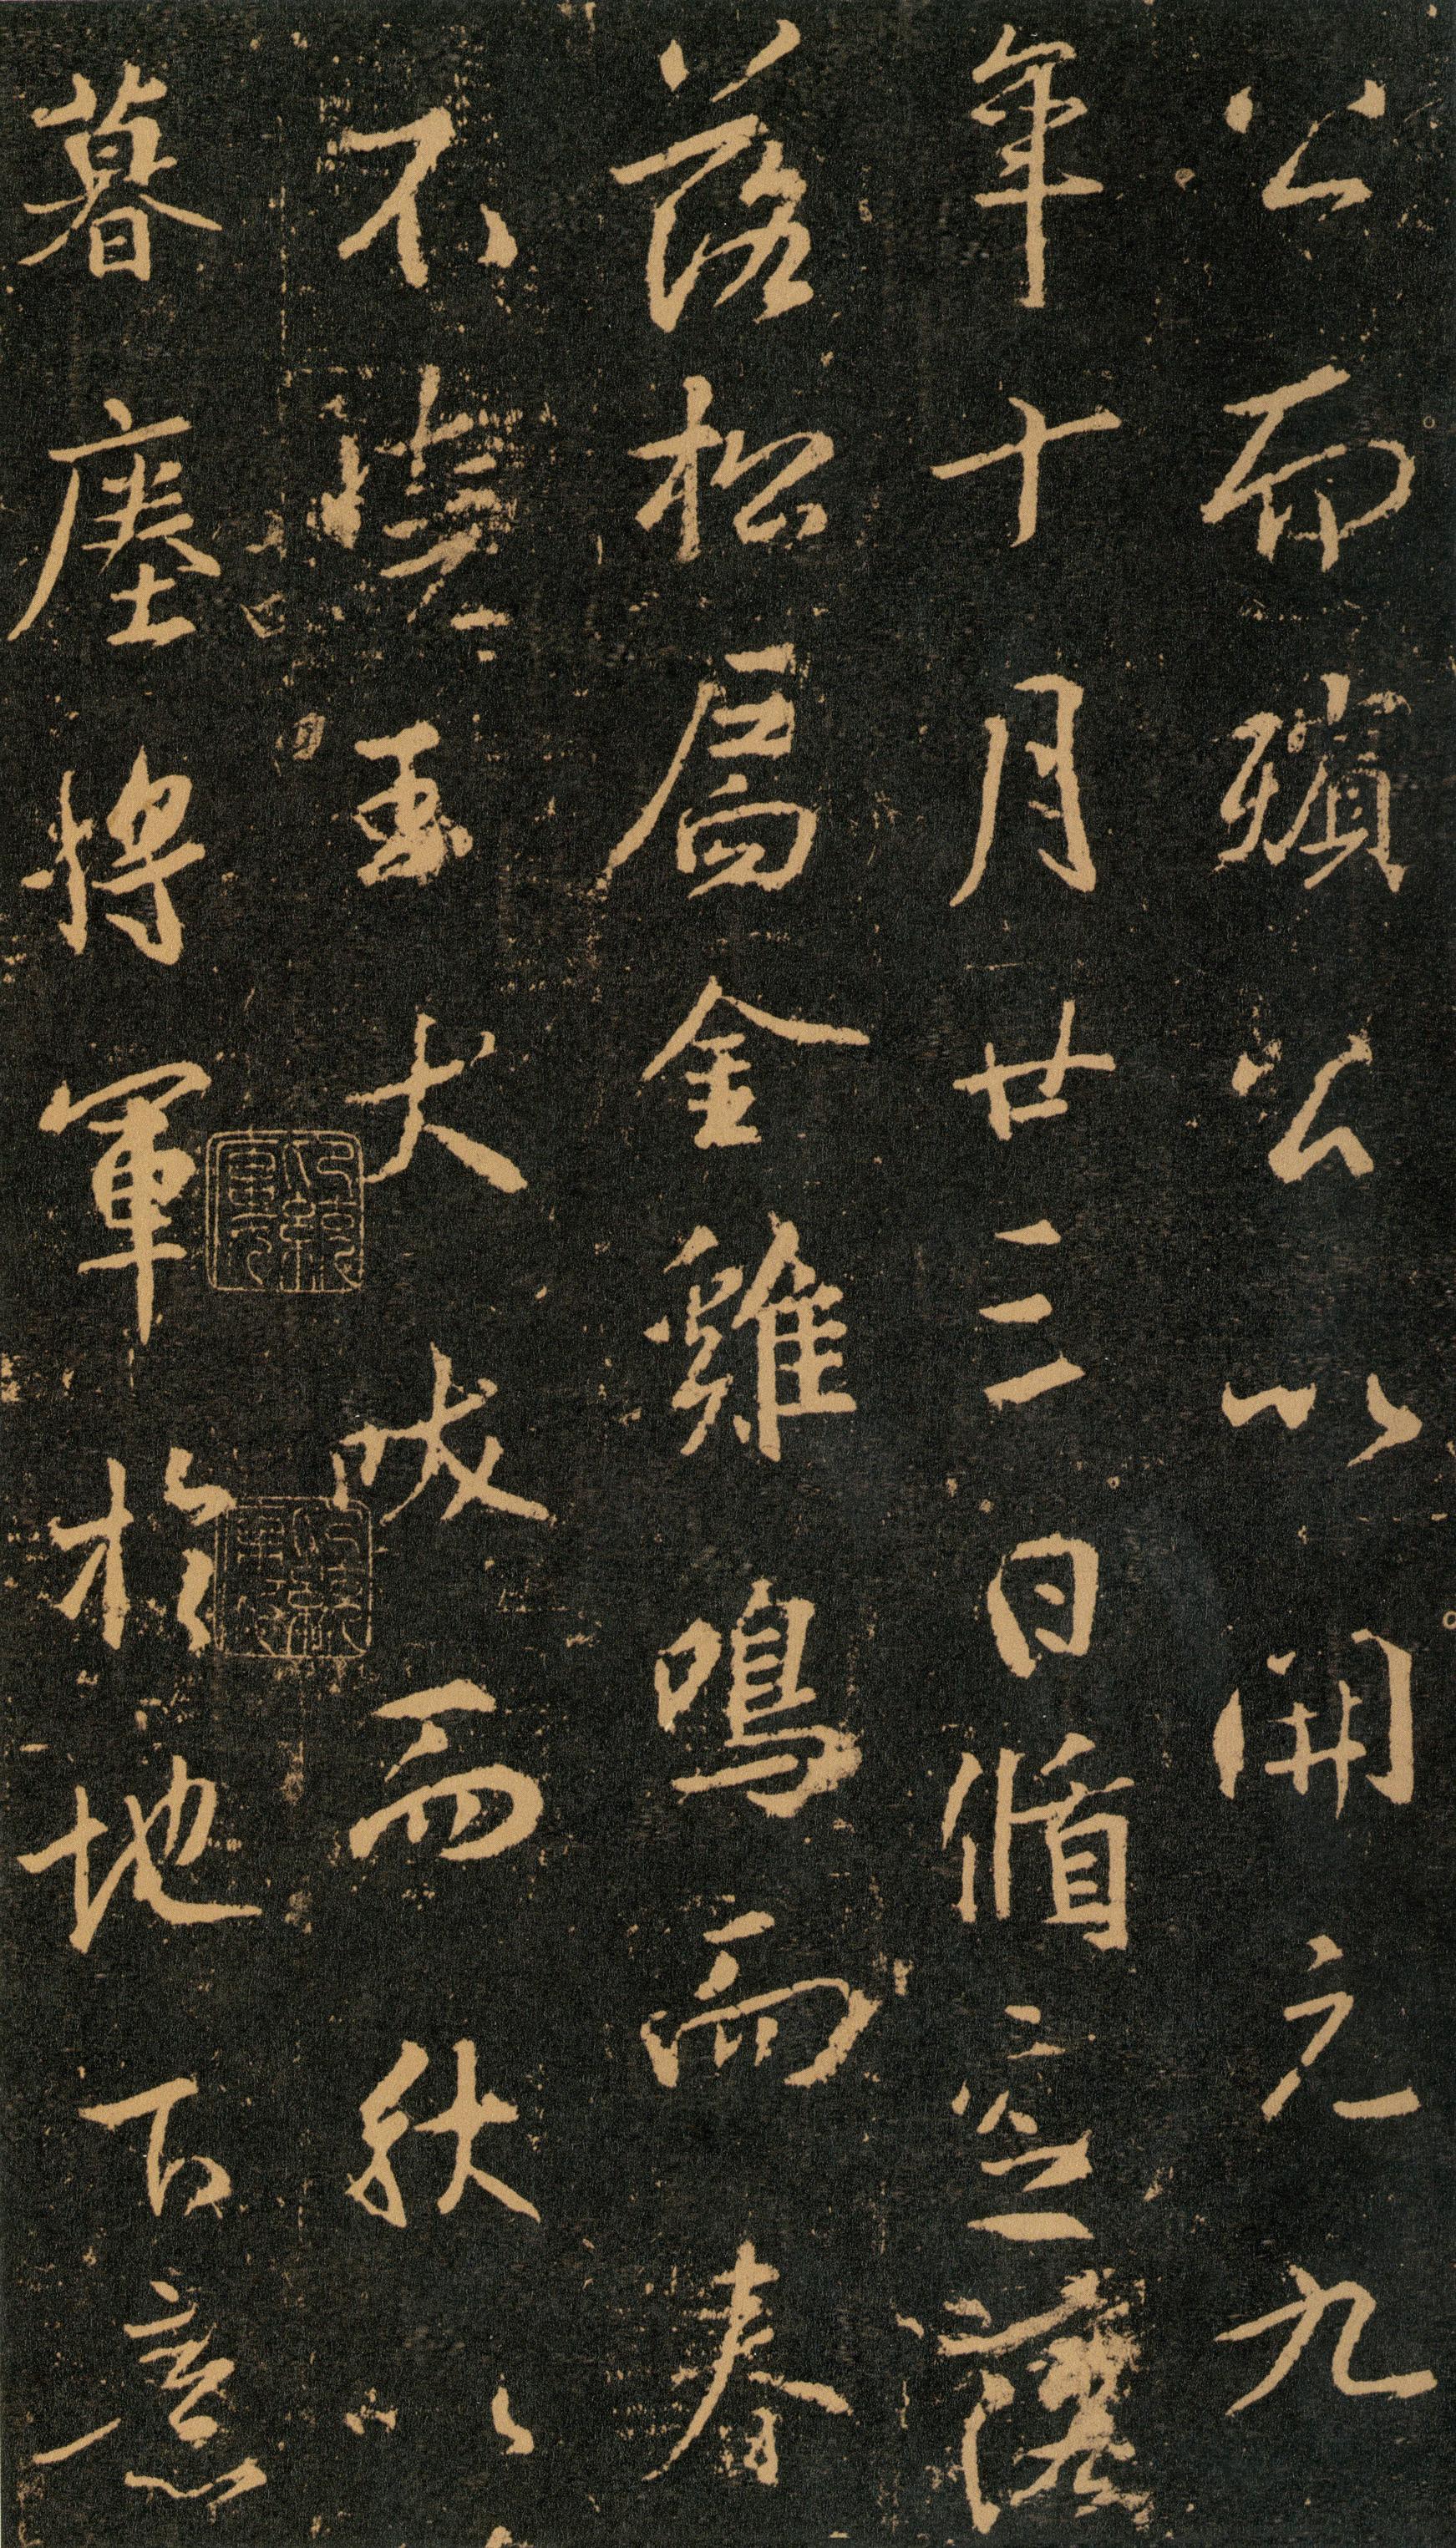 公而殞公以開元九
年十月廿三日循
落松扃金雞鳴而春
不曉玉犬吠而秋以
暮塵將軍於地下意